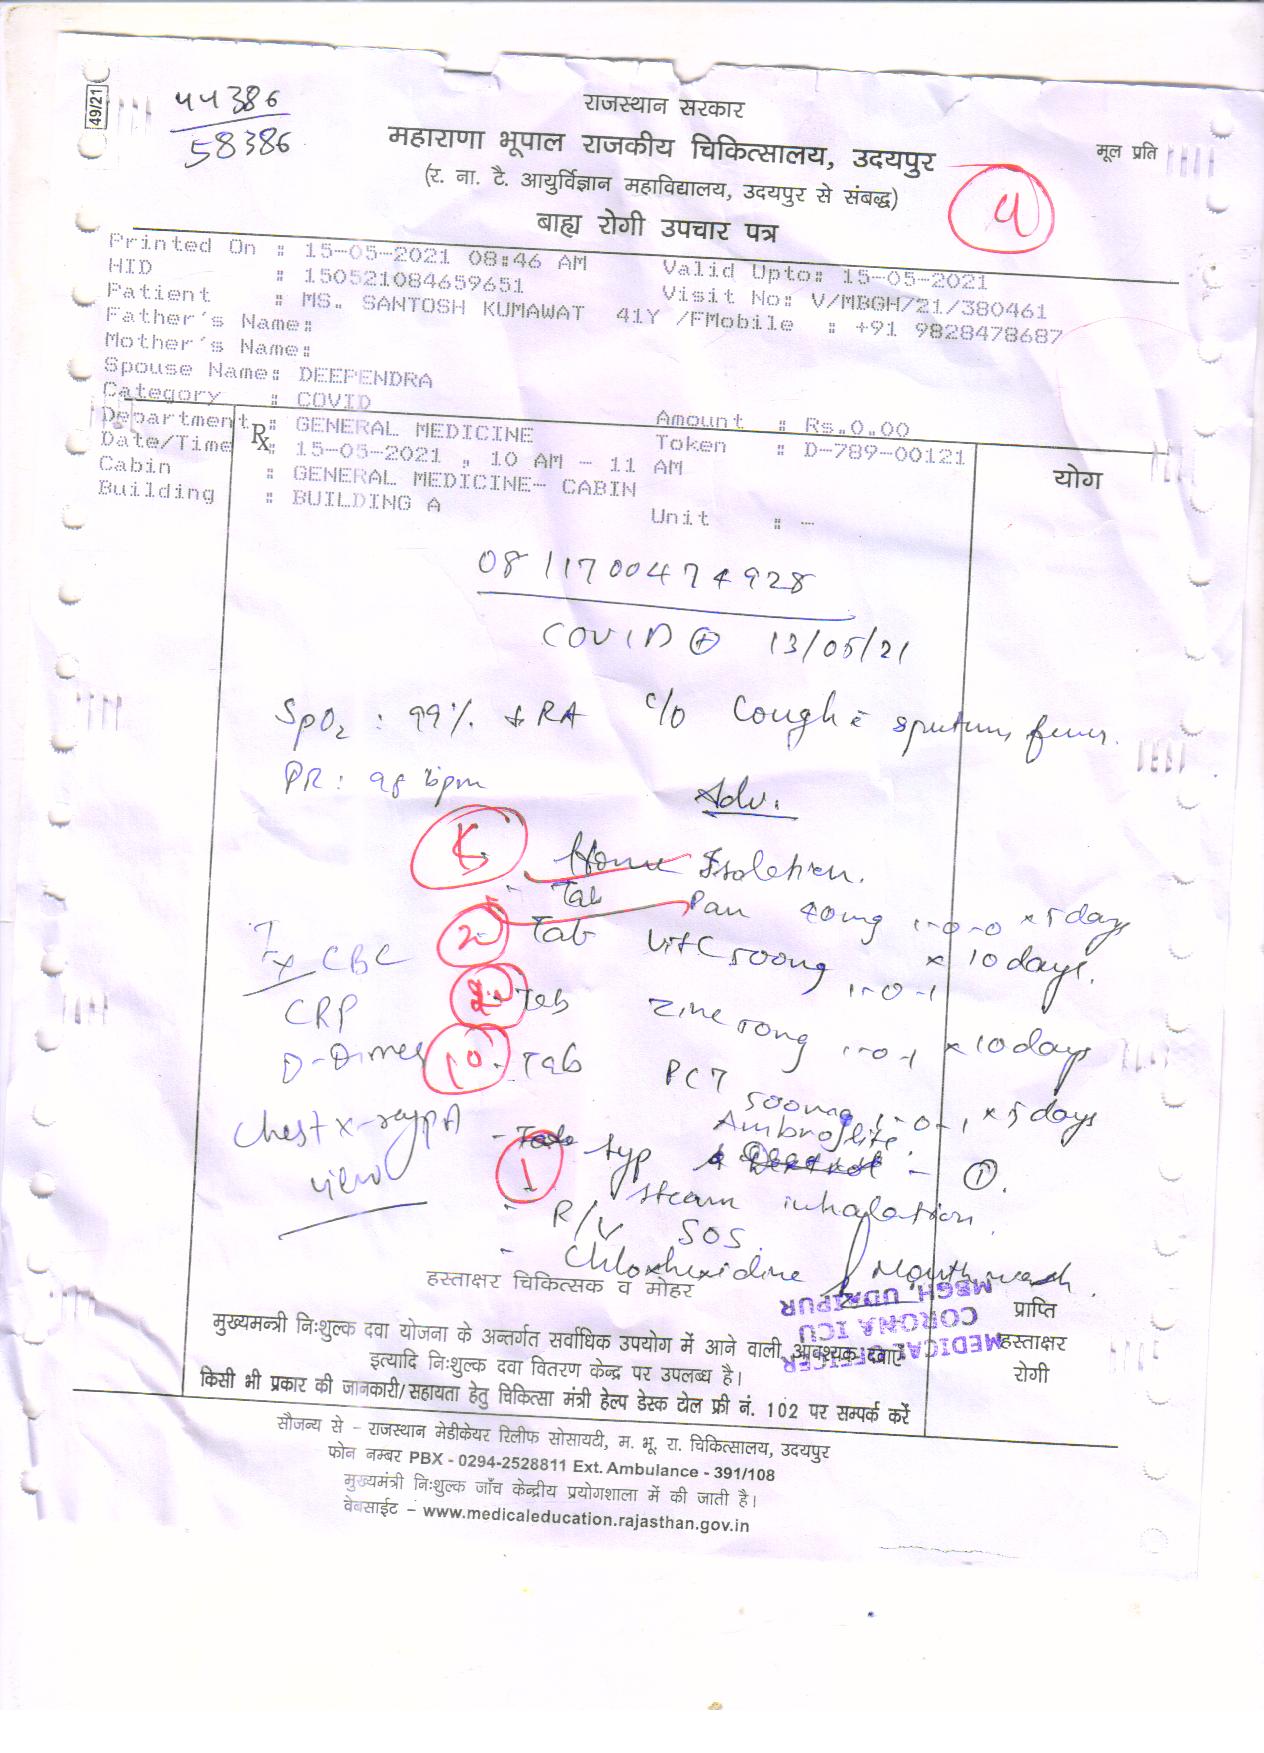 49/21
44386
58386
राजस्थान सरकार
महाराणा भूपाल राजकीय चिकित्सालय, उदयपुर
मूल प्रति
(र. ना. टै. आयुर्विज्ञान महाविद्यालय, उदयपुर से संबद्ध)
बाह्य रोगी उपचार पत्र
Printed On : 15-05-2021 08:46 AM Valid Upto: 15-05-2021
HID : 150521084659651 Visit No: V/MBGH/21/380461
Patient : MS. SANTOSH KUMAWAT 41Y /FMobile : +91 9828478687
Father's Name:
Mother's Name:
Spouse Name: DEEPENDRA
Category : COVID Amount : Rs.0.00
Department : GENERAL MEDICINE Token : D-789-00121
Rx
Date/Time : 15-05-2021 , 10 AM - 11 AM
योग
Cabin : GENERAL MEDICINE- CABIN
Building : BUILDING A Unit : -
0811700474928
COVID ⊕ 13/05/21
SpO2 : 99% RA c/o Cough c sputum, fever.
PR: 98 bpm
Adv.
Home Isolation.
- Tab Pan 40mg 1-0-0 x 5 days
2 - Tab VitC 500mg 1-0-1 x 10 days.
CBC
- Tab Zinc 50mg 1-0-1 x 10 days
CRP
10 - Tab PCT 500mg 1-0-1 x 5 days
D-Dimer
Chest x-ray PA view
1 - syp Ambrolite - ①.
steam inhalation.
- R/V SOS.
- Chlorhexidine Mouthwash.
हस्ताक्षर चिकित्सक व मोहर
MEDICAL OFFICER
CORONA ICU
MBGH UDAIPUR
प्राप्ति
हस्ताक्षर
रोगी
मुख्यमन्त्री निःशुल्क दवा योजना के अन्तर्गत सर्वाधिक उपयोग में आने वाली आवश्यक दवाएं
इत्यादि निःशुल्क दवा वितरण केन्द्र पर उपलब्ध है।
किसी भी प्रकार की जानकारी/सहायता हेतु चिकित्सा मंत्री हेल्प डेस्क टोल फ्री नं. 102 पर सम्पर्क करें
सौजन्य से – राजस्थान मेडीकेयर रिलीफ सोसायटी, म. भू. रा. चिकित्सालय, उदयपुर
फोन नम्बर PBX - 0294-2528811 Ext. Ambulance - 391/108
मुख्यमंत्री निःशुल्क जाँच केन्द्रीय प्रयोगशाला में की जाती है।
वेबसाईट – www.medicaleducation.rajasthan.gov.in